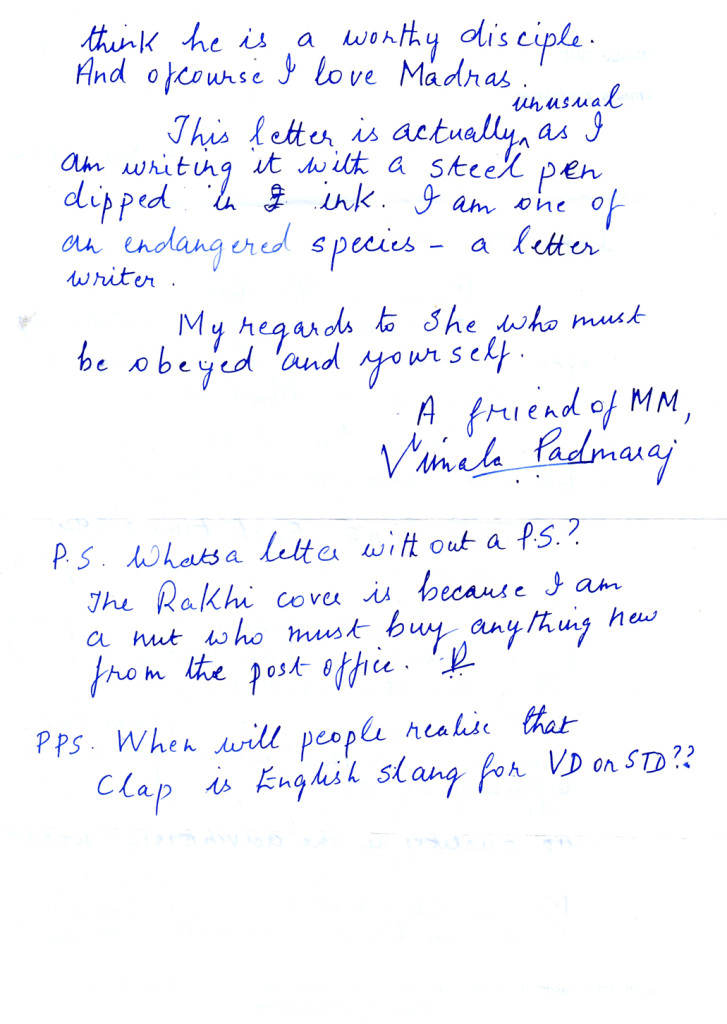 think he is a worthy disciple.
And ofcourse I love Madras.
unusual
This letter is actually^ as I
am writing it with a steel pen
dipped in ink. I am one of
an endangered species – a letter
writer.
My regards to She who must
be obeyed and yourself.
A friend of MM,
Vimala Padmaraj
P.S. Whatsa letter with out a P.S.?
The Rakhi cover is because I am
a nut who must buy anything new
from the post office.
PPS. When will people realise that
Clap is English slang for VD or STD??